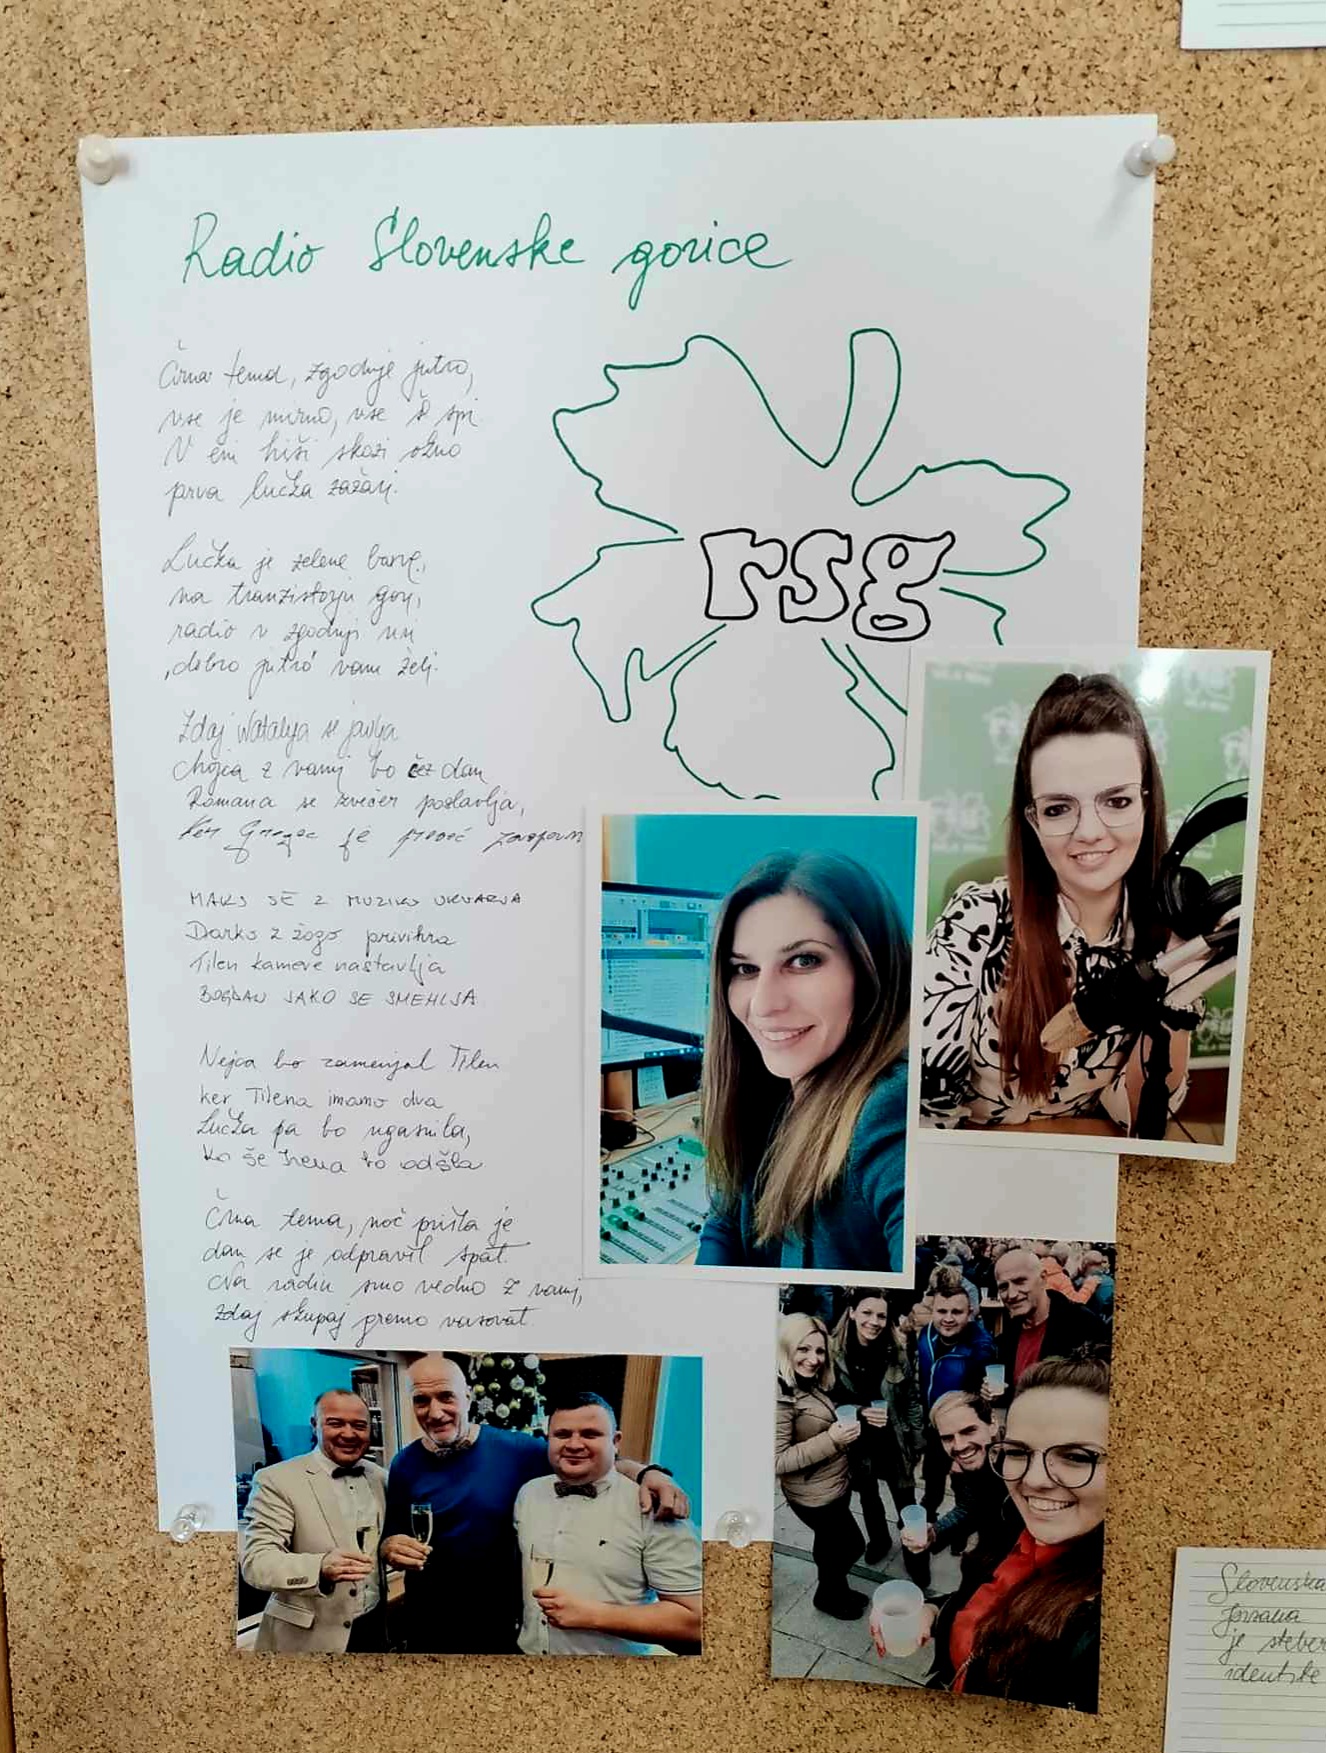 Radio Slovenske gorice
Črna tema, zgodnje jutro,
vse je mirno, vse še spi.
V eni hiši skozi okno
prva lučka zažari.
Lučka je zelene barve,
na tranzistorju gori,
radio v zgodnji uri
"dobro jutro" vam želi.
Zdaj Natalija se javlja
z vami bo čez dan
Romana se zvečer poslavlja,
Ker
MAKS SE Z MUZIKO UKVARJA
Darko z žogo privihra
Tilen kamere nastavlja
BOGDAN JAKO SE SMEHLJA
Nejca bo zamenjal Tilen
ker Tilena imamo dva
Lučka pa bo ugasnila,
ko še Irena bo odšla
Črna tema, noč prišla je
dan se je odpravil spat.
Na radiu smo vedno z vami,
zdaj skupaj gremo vasovat.
rsg
Slovenska
je steber